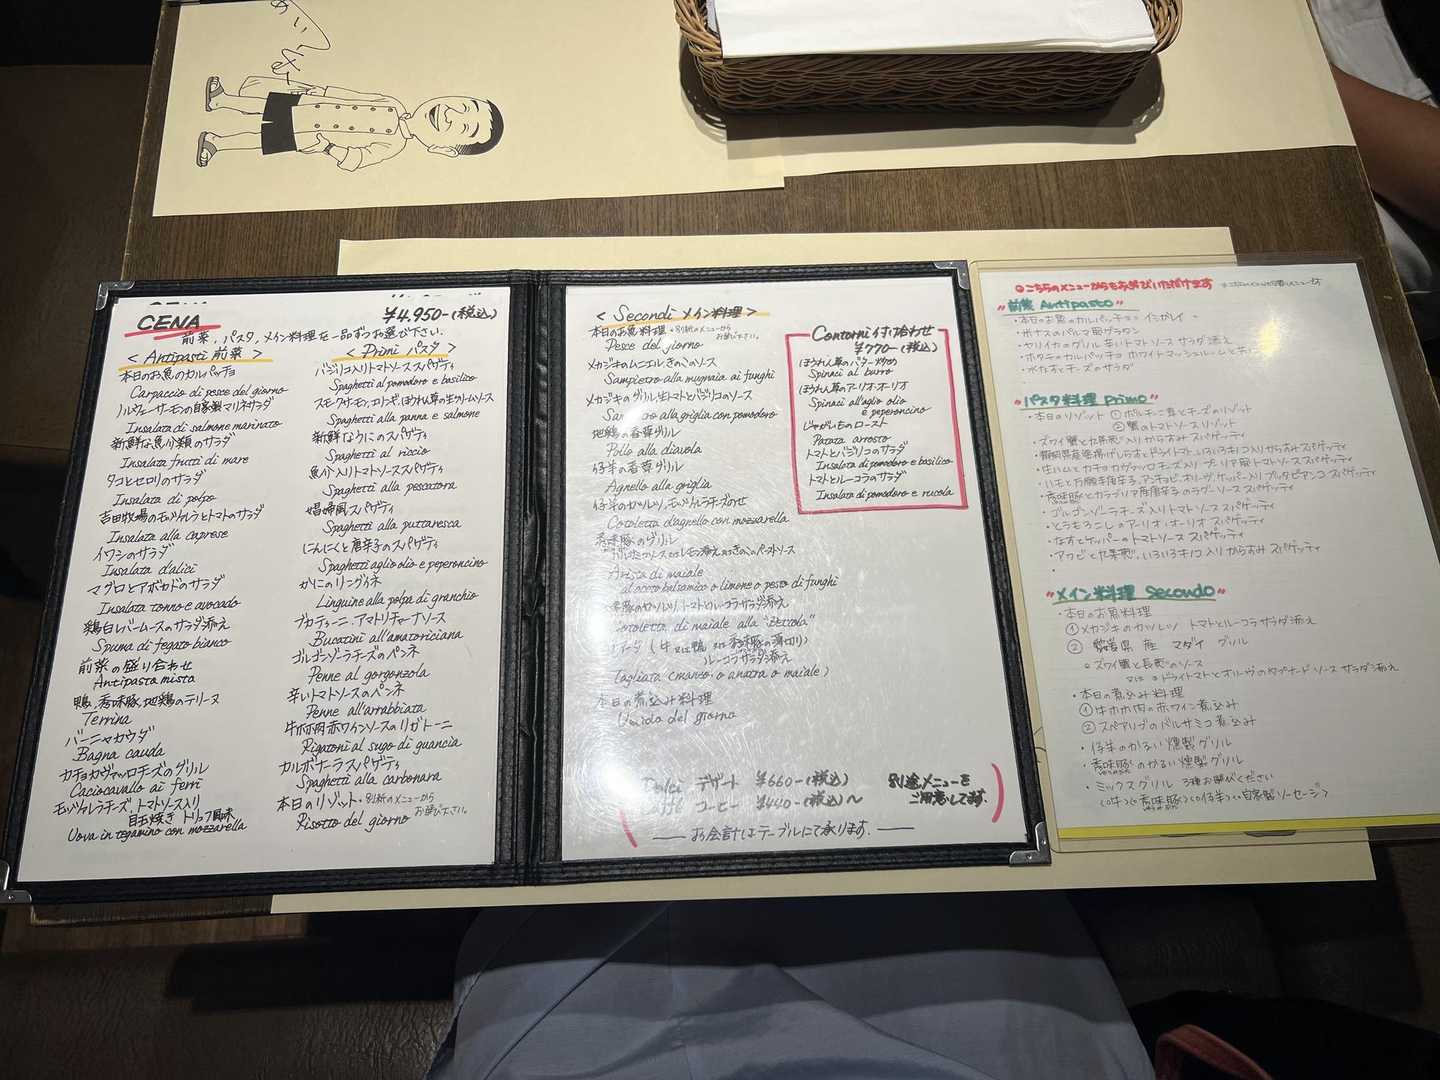 CENA
¥4,950-(税込)
前菜、パスタ、メイン料理を一品ずつお選び下さい.
< Antipasti 前菜 >
本日のお魚のカルパッチョ
Carpaccio di pesce del giorno
ノルウェーサーモンの自家製マリネサラダ
Insalata di salmone marinato
新鮮な魚介類のサラダ
Insalata frutti di mare
タコとセロリのサラダ
Insalata di polpo
吉田牧場のモッツァレラとトマトのサラダ
Insalata alla caprese
イワシのサラダ
Insalata d'alici
マグロとアボカドのサラダ
Insalata tonno e avocado
鶏白レバームースのサラダ添え
Spuma di fegato bianco
前菜の盛り合わせ
Antipasto misto
鴨、香味豚、地鶏のテリーヌ
Terrina
バーニャカウダ
Bagna cauda
カチョカヴァッロチーズのグリル
Caciocavallo ai ferri
モッツァレラチーズ、トマトソース入り
目玉焼き トリュフ風味
Uova in tegamino con mozzarella
< Primi パスタ >
バジリコ入りトマトソーススパゲティ
Spaghetti al pomodoro e basilico
スモークサーモン、エリンギ、ほうれん草の生クリームソース
Spaghetti alla panna e salmone
新鮮なうにのスパゲティ
Spaghetti al riccio
魚介入りトマトソーススパゲティ
Spaghetti alla pescatora
娼婦風スパゲティ
Spaghetti alla puttanesca
にんにくと唐辛子のスパゲティ
Spaghetti aglio olio e peperoncino
かにのリングイネ
Linguine alla polpa di granchio
ブカティーニ・アマトリチャーナソース
Bucatini all'amatriciana
ゴルゴンゾーラチーズのペンネ
Penne al gorgonzola
辛いトマトソースのペンネ
Penne all'arrabbiata
牛ホホ肉赤ワインソースのリガトーニ
Rigatoni al sugo di guancia
カルボナーラスパゲティ
Spaghetti alla carbonara
本日のリゾット・別紙のメニューから
お選び下さい。
Risotto del giorno
< Secondi メイン料理 >
本日のお魚料理・別紙のメニューから
お選び下さい。
Pesce del giorno
メカジキのムニエルきのこのソース
Sampietro alla mugnaia ai funghi
メカジキのグリル生トマトとバジリコのソース
alla griglia con pomodoro
地鶏の香草グリル
Pollo alla diavola
仔羊の香草グリル
Agnello alla griglia
仔羊のカツレツ、モッツァレラチーズのせ
Cotoletta d'agnello con mozzarella
香味豚のグリル
バルサミコソース又はレモン添え又はきのこのペーストソース
Arista di maiale
al aceto balsamico o limone o pesto di funghi
豚のカツレツ、トマトとルーコラサラダ添え
Cotoletta di maiale alla "Bettola"
(牛 又は 鴨 又は 香味豚の薄切り)
ルーコラサラダ添え
Tagliata (manzo o anatra o maiale)
本日の煮込み料理
Umido del giorno
Contorni 付け合わせ
¥770-(税込)
ほうれん草のバター炒め
Spinaci al burro
ほうれん草のアーリオ・オーリオ
Spinaci all'aglio olio
e peperoncino
じゃがいものロースト
Patata arrosto
トマトとバジリコのサラダ
Insalata di pomodoro e basilico
トマトとルーコラのサラダ
Insalata di pomodoro e rucola
Dolci デザート ¥660-(税込)
Caffé コーヒー ¥440-(税込)〜
別途メニューを
ご用意してます.
お会計はテーブルにて承ります.
○こちらのメニューからもお選びいただけます
"前菜 Antipasto"
・本日のお魚のカルパッチョ=イシガレイ
・ホナスのパルマ風グラタン
・ヤリイカのグリル 辛いトマトソース サラダ添え
・ホタテのカルパッチョ ホワイトマッシュルームと
・水なすとチーズのサラダ
"パスタ料理 Primo"
・本日のリゾット ①ポルチーニ茸とチーズのリゾット
②蟹のトマトソースリゾット
・ズワイ蟹と九条葱入りからすみスパゲッティ
・静岡県産釜揚げしらすとドライトマト、いろいろキノコ入りからすみスパゲッティ
・生ハムとカチョカヴァッロチーズ入り 風トマトソーススパゲッティ
・ハモと万願寺唐辛子、アンチョビ、オリーヴ、ケッパー入りプッタネスカ スパゲッティ
・香味豚とカラブリア産唐辛子のラグーソース スパゲッティ
・ゴルゴンゾーラチーズ入りトマトソース スパゲッティ
・とうもろこしのアーリオ・オーリオ スパゲッティ
・なすとケッパーのトマトソース スパゲッティ
・アワビと九条葱、いろいろキノコ入りからすみ スパゲッティ
"メイン料理 Secondo"
・本日のお魚料理
①メカジキのカツレツ トマトとルーコラサラダ添え
②愛媛県産 マダイ グリル
○ズワイ蟹と長葱のソース
又は ○ドライトマトとオリーヴのタプナードソース サラダ添え
・本日の煮込み料理
①牛ホホ肉の赤ワイン煮込み
②スペアリブのバルサミコ煮込み
・仔羊のかるい燻製グリル
・香味豚のかるい燻製グリル
・ミックスグリル 3種お選びください
<○牛><○香味豚><○仔羊><○自家製ソーセージ>